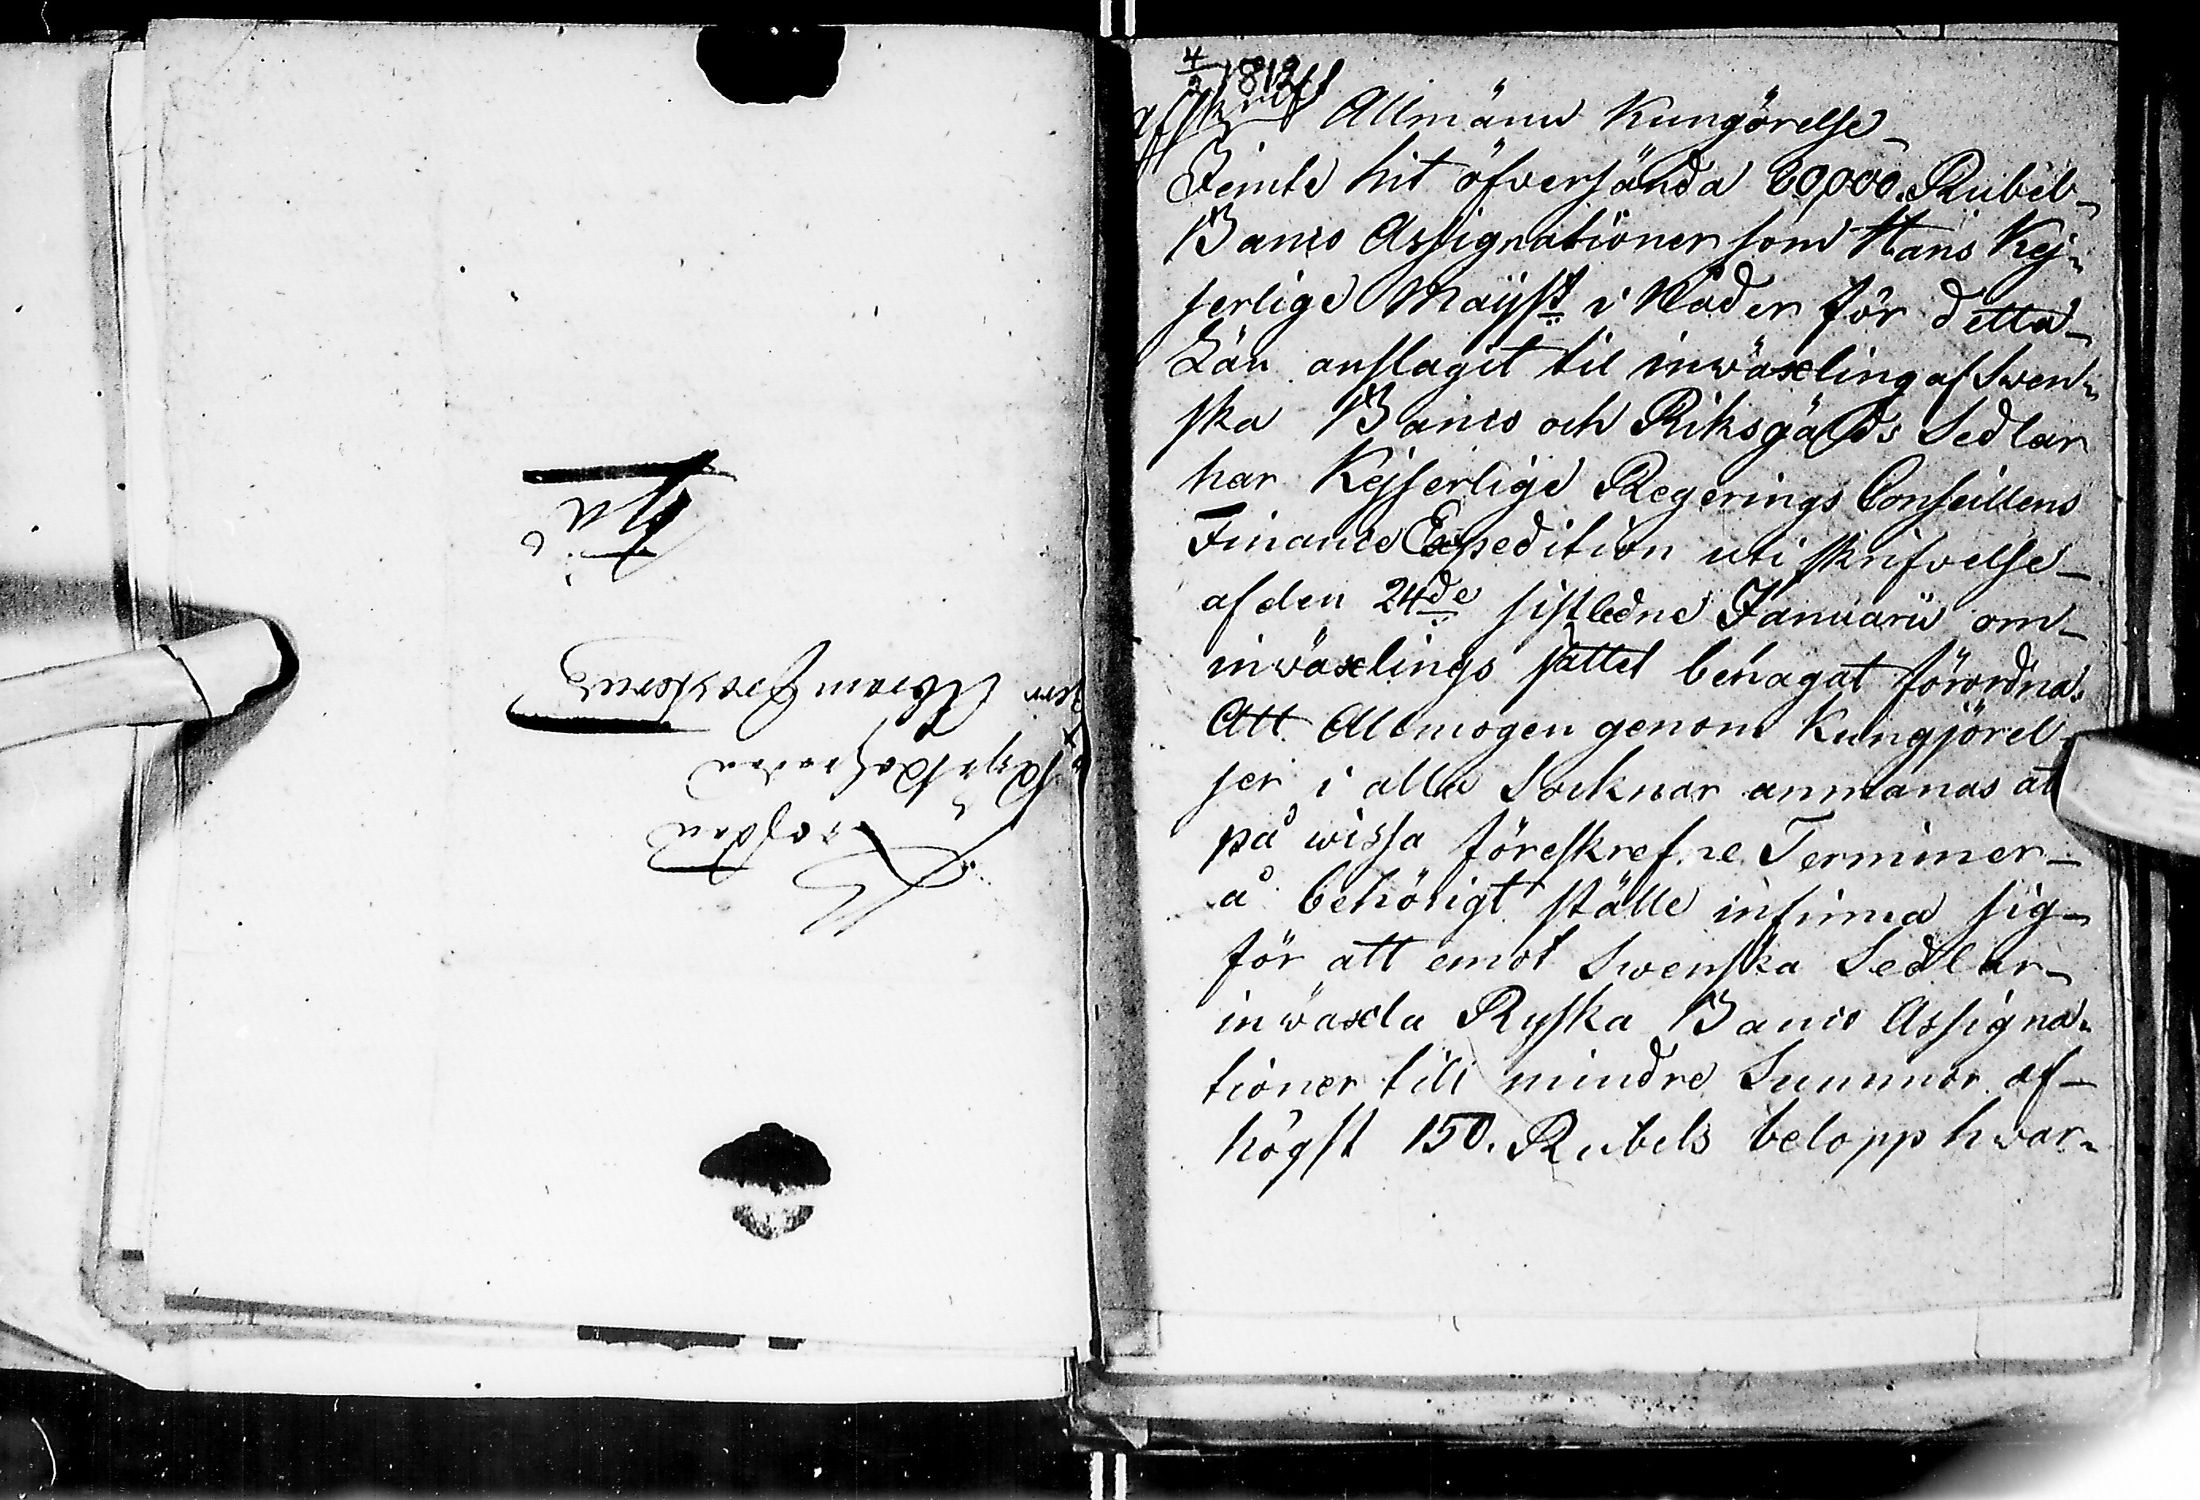 4/2 1812
Afskrift Allmänn Kungörelse
Jemte hit öfversända 60,000. Rubel
Banco Assignationer som Hans Kej-
serlige Maijst: i Nåder för detta
Län anslagit til inwäxling af Swen-
ska Banco och Riksgälds Sedlar
har Kejserlige Regerings Conseillens
Finance Expedition uti skrifvelse
af den 24de sistledne Januarii om
inwäxlings sättet behagat förordna:
Att Allmogen genom Kungjörel-
ser i alla Socknar anmanas at
på wissa föreskrefne Terminer
å behörigt ställe infinna sig
för att emot Swenska Sedlar
inwäxla Ryska Banco Assigna-
tioner till mindre Summor af
högst 150. Rubels belopp hwar-